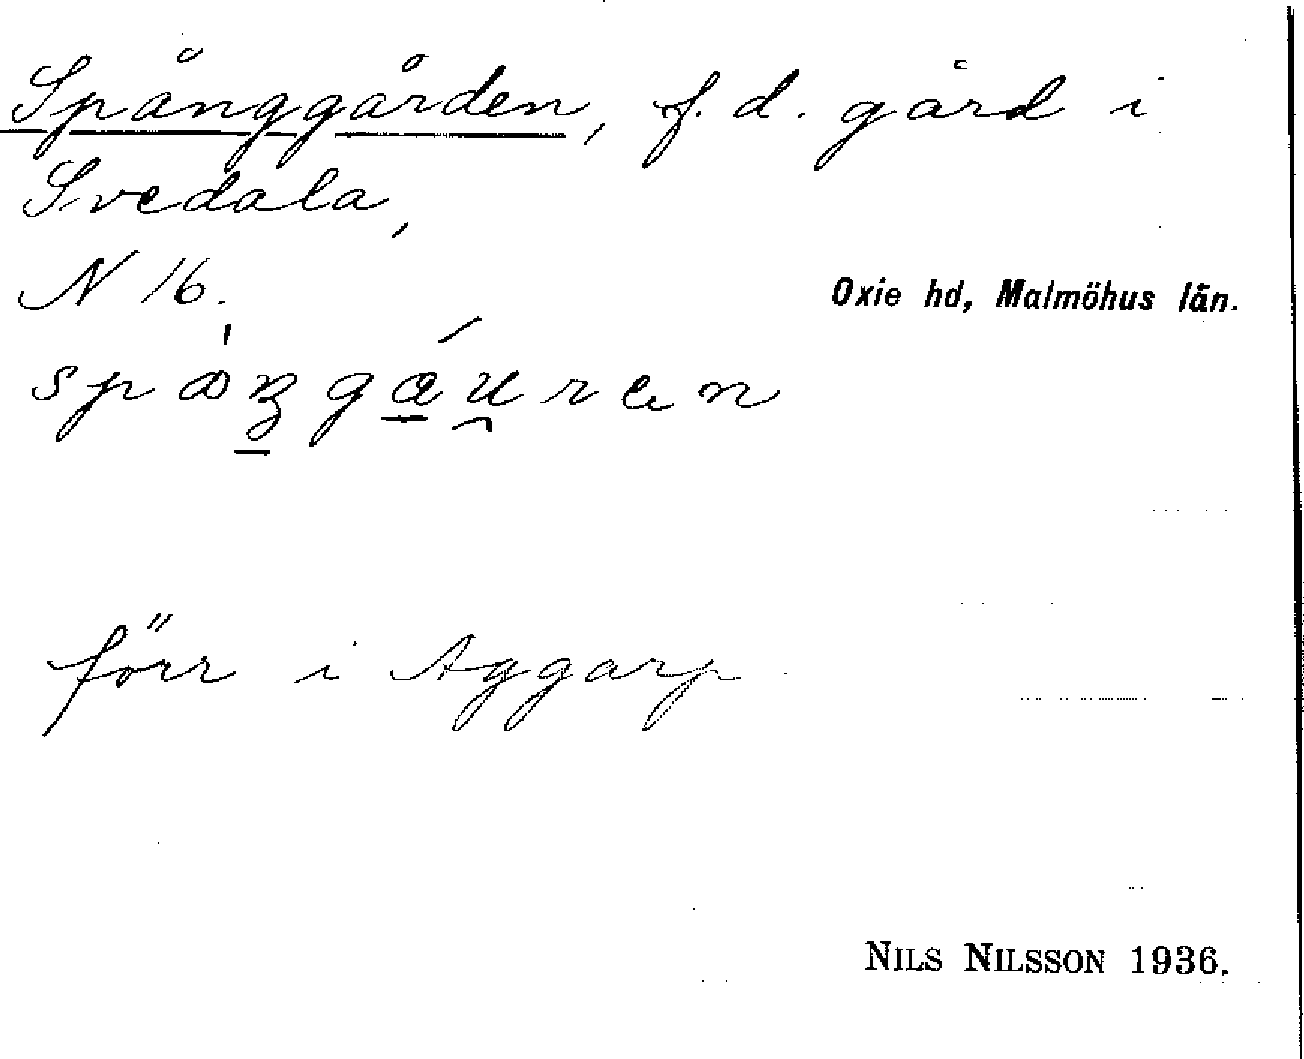 Spånggården, f.d. gård i
Svedala,
N 16.
Oxie hd, Malmöhus län.
förr i Aggarp
NILS NILSSON 1936.